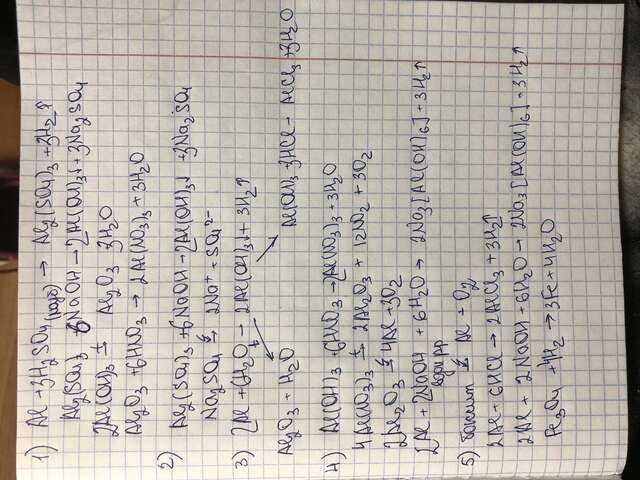 1) Al + 3H2SO4 (разб) → Al2(SO4)3 + 3H2↑
Al2(SO4)3 + 6NaOH → 2Al(OH)3↓ + 3Na2SO4
2Al(OH)3 t→ Al2O3 3H2O
Al2O3 + 6HNO3 → 2Al(NO3)3 + 3H2O
2) Al2(SO4)3 + 6NaOH → 2Al(OH)3↓ + 3Na2SO4
Na2SO4 ⇄ 2Na+ + SO4 2-
3) 2Al + 6H2O → 2Al(OH)3↓ + 3H2↑
Al2O3 + H2O Al(OH)3 + 3HCl - AlCl3 + 3H2O
4) Al(OH)3 + 6HNO3 → Al(NO3)3 + 3H2O
4Al(NO3)3 t→ 2Al2O3 + 12NO2 + 3O2
2Al2O3 → 4Al + 3O2
2Al + 2NaOH + 6H2O → 2Na3[Al(OH)6] + 3H2↑
водн рр
5) Боксит Al - O2
2Al + 6HCl → 2AlCl3 + 3H2↑
2Al + 2NaOH + 6H2O → 2Na3[Al(OH)6] + 3H2↑
Fe3O4 + 4H2 → 3Fe + 4H2O